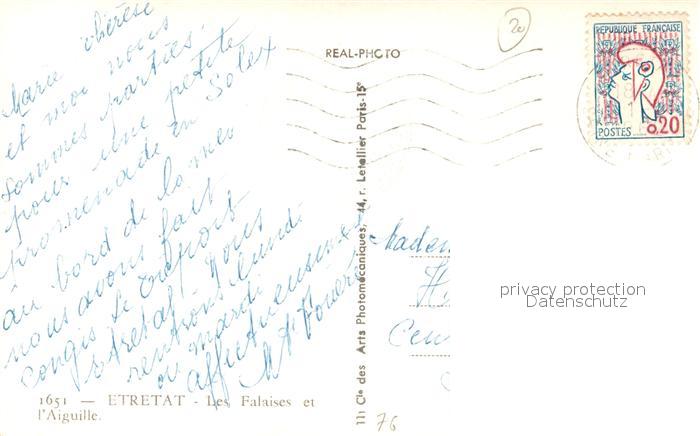 Marie Thérèse
et moi nous
sommes parties
pour une petite
promenade en Solex
au bord de la mer
nous avons fait
le Tréport
Etretat. Nous
rentrons lundi
ou mardi
affectueusement
REAL-PHOTO
20
REPUBLIQUE FRANÇAISE
POSTES 0,20
111 Cie des Arts Photomécaniques, 44, r. Letellier Paris-15e
Madem
privacy protection
Datenschutz
1651 — ETRETAT - Les Falaises et
l'Aiguille.
76